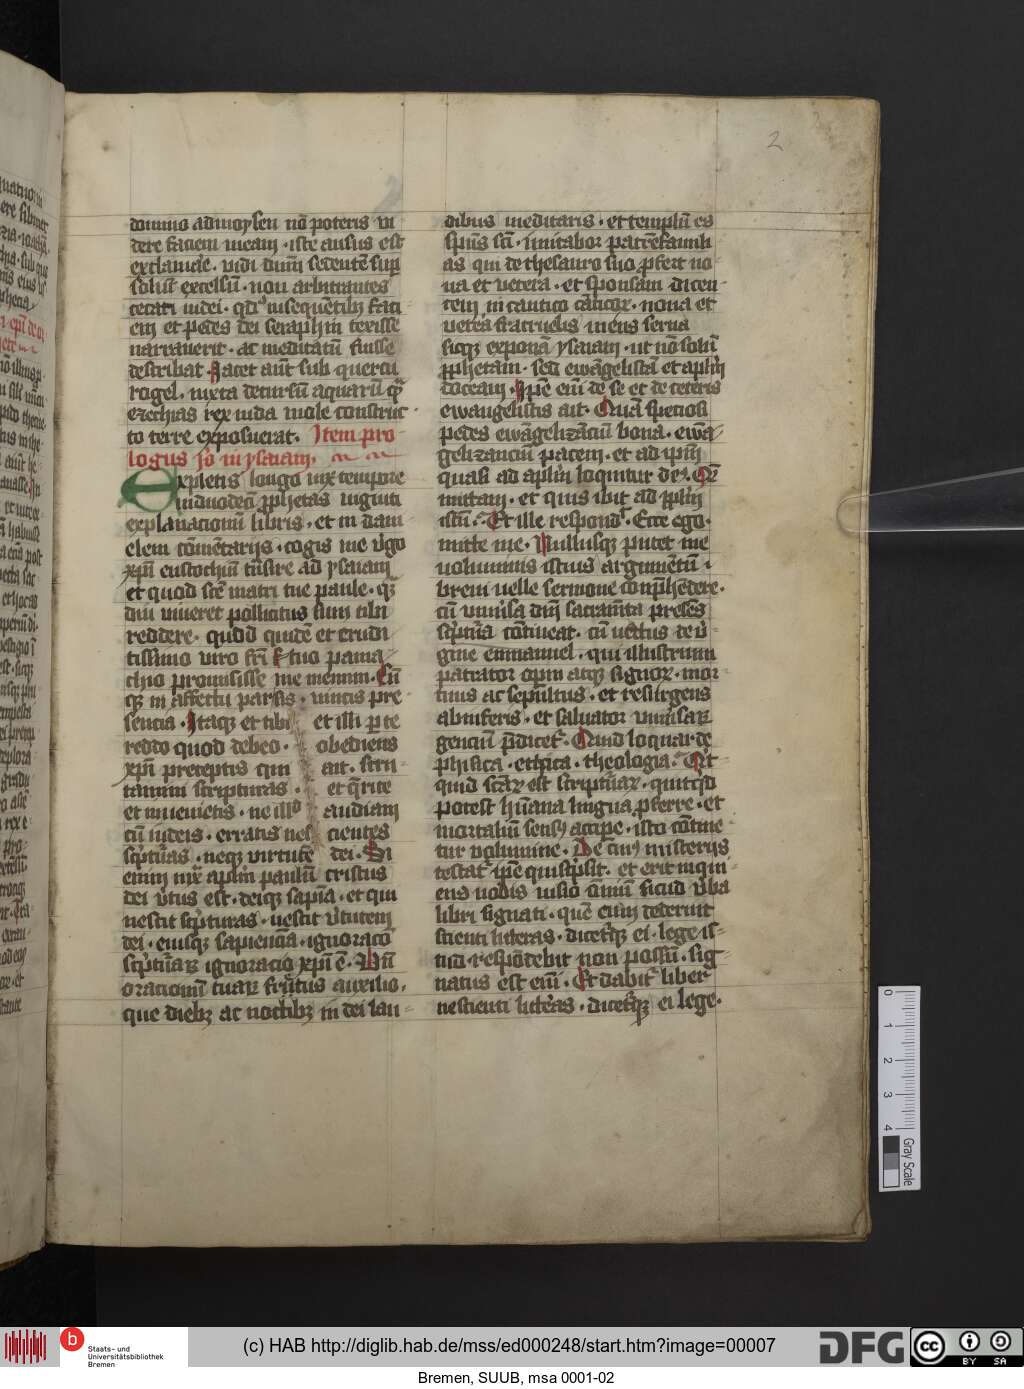 2
domino ad moysen nō poteris vi
dere faciem meam · iste ausus est
exclamare · vidi dnm̄ sedentē sup̄
soliū excelsū · non arbitrantes
cecati iudei · qd' in sequētib; faci
em et pedes dei seraphim texisse
narraverit · ac meditatū fuisse
describat · Jacet aūt sub quercu
rogel · iuxta decursū aquarū q̄
ezechias rex iuda mole construc
to terre exposuerat · Item pro
logus Jo in ysaiam.
Expletis longo vix tempore
in duodecī p̄phetas viginti
explanacionū libris · et in dani
elem cōmētarijs · cogis me v̄go
xp̄i eustochiū trāsire ad ysaiam
et quod sc̄e matri tue paule · q̄
diu viveret pollicitus sum tibi
reddere · quod quidē et erudi
tissimo viro fr̄i tuo pama
chio promisisse me memini · Cū
q; in affectu par sis · vincis pre
sencia · Itaq; et tibi et illi p te
reddo quod debeo · obediens
xp̄i preceptis qui ait · scru
tamini scripturas · et q̄rite
et invenietis · ne illd audiam
cū iudeis · erratis nes cientes
sc̄pturas · neq; virtutē dei · Si
enim iux̄ ap̄lm paulū cristus
dei v̄tus est · deiq; sapīa · et qui
nescit sc̄pturas · nescit v̄tutem
dei · eiusq; sapienciā · ignoracō
sc̄pturar; ignoracio xp̄i ē · Vn̄
oracionū tuar; fr̄etus auxilio ·
que dieb; ac noctib; in dei lau
dibus meditaris · et templū es
sp̄us sc̄i · imitabor patrēfamili
as qui de thesauro suo p̄fert no
va et vetera · et sponsam dicen
tem in cantico cāticor; · nova et
vetera fratruelis meus serva
sicq; exponā ysaiam · ut nō solū
p̄phetam · sed ewāgelistā et aplm̄
doceam · Ip̄e em̄ de se et de ceteris
ewangelistis ait · Quā speciosi
pedes ewāgelizāciū bona · ewā
gelizanciū pacem · et ad ip̄m
quasi ad aplm̄ loquitur de⁹ · Quē
mittam · et quis ibit ad p̄plm̄
istū · Et ille respond̄ · Ecce ego ·
mitte me · Nullusq; putet me
voluminis istius argumētū
brevi velle sermone conp̄hēdere ·
cū vniv̄sa dn̄i sacram̄ta presēs
sc̄ptura cōtineat · cū
gine emmanuel · qui illustrium
patrator op̄m atq; signor; · mor
tuus ac sepultus · et resurgens
ab inferis · et salvator vniv̄sar;
genciū p̄dicet̄ · Quid loquar de
phisica · ethica · theologia · Quit
quid sc̄ar; est scriptur̄ar; · quitq̄d
potest hūana lingua p̄ferre · et
mortaliū sens; accipe · isto cōtine
tur volumine · De cui⁹ misteriis
testat̄ ip̄e qui scp̄sit · et erit inqui
ens vobis visio ōmiū sicud v̄ba
libri signati · quē cum dederint
scienti litteras · dicetq; ei · lege is
tud · respōdebit non possū · sig
natus est em̄ · Et dabit̄ liber
nescienti litteras · dicetq; ei lege ·
0
1
2
3
4
Gray Scale
Staats- und
Universitätsbibliothek
Bremen
(c) HAB http://diglib.hab.de/mss/ed000248/start.htm?image=00007
DFG
cc BY SA
Bremen, SUUB, msa 0001-02